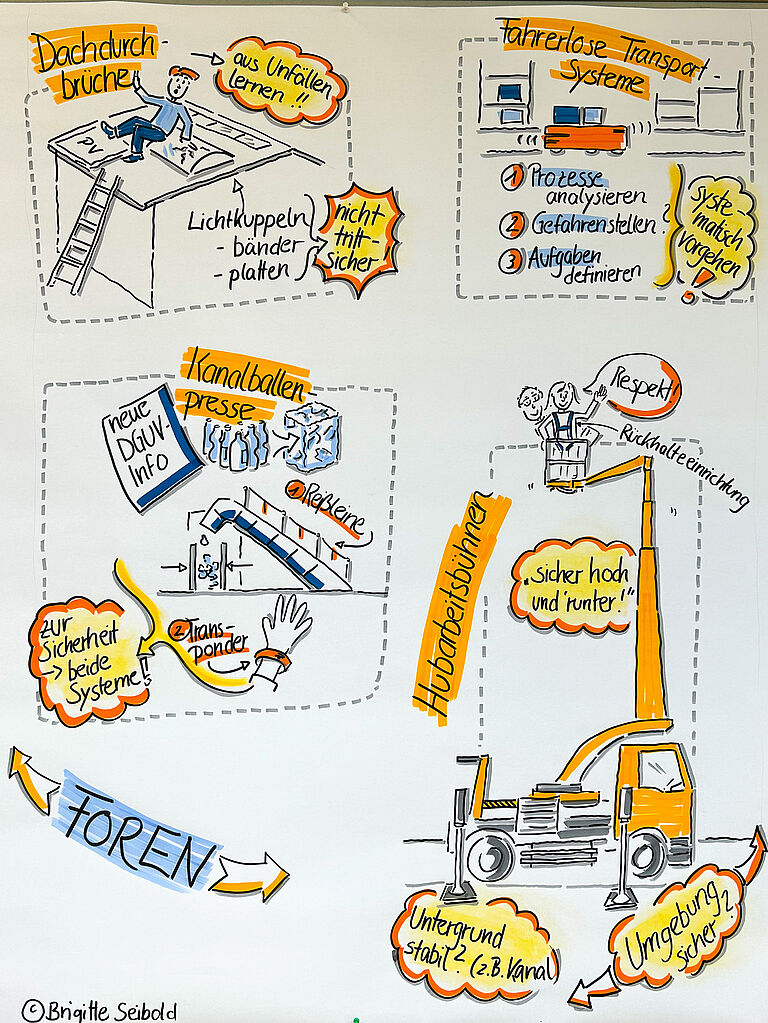 Dachdurch-
brüche
→ aus Unfällen
lernen!!
PV
Lichtkuppeln
- bänder
- platten
nicht
tritt-
sicher
Fahrerlose Transport-
Systeme
1 Prozesse
analysieren
2 Gefahrenstellen?
3 Aufgaben
definieren
Syste-
matisch
vorgehen
!
Kanalballen-
presse
neue
DGUV-
Info
1 Reßleine
2 Trans-
ponder
zur
Sicherheit
→ beide
Systeme!
Respekt!
Rückhalteeinrichtung
Hubarbeitsbühnen
„Sicher hoch
und 'runter!"
FOREN
Untergrund
stabil? (z.B. Kanal)
Umgebung
sicher?
© Brigitte Seibold